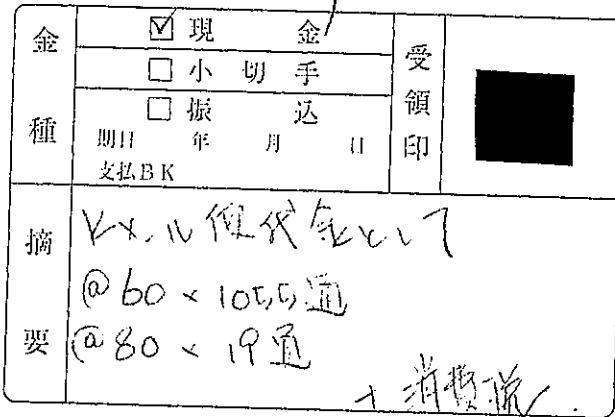 金種
☑ 現金
□ 小切手
□ 振込
期日 年 月 日
支払BK
受領印
摘要
メール便代金として
@60×1055通
@80×19通
+消費税.